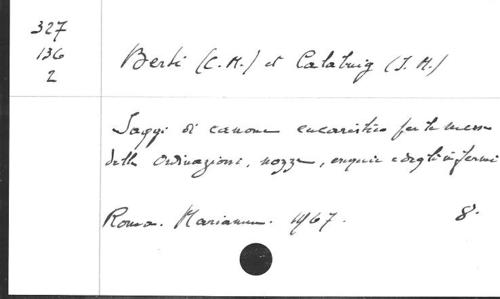 327
136
2
Berti (C. M.) et Calabuig (I. M.)
Saggi di canone eucaristico per le messe
delle ordinazioni, nozze, esequie e degli infermi
Roma. Marianum. 1967. 8.